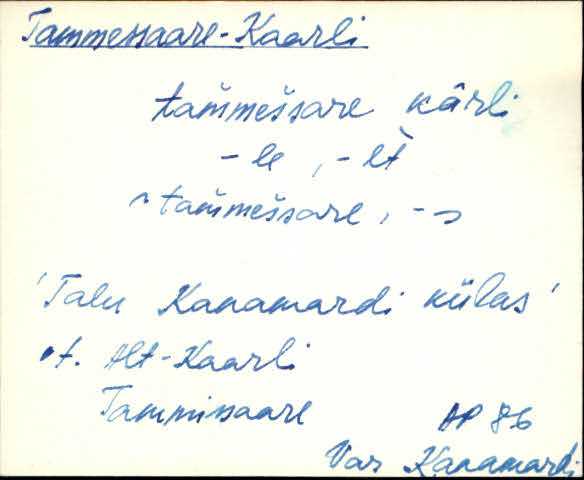 Tammessaare-Kaarli
tam̆mešsare kârli
-le, -lt̀
~ tam̆mešsare, -s
'Talu Kanamardi külas'
vt. Alt-Kaarli
Tammissaare AP 86
Var Kanamardi